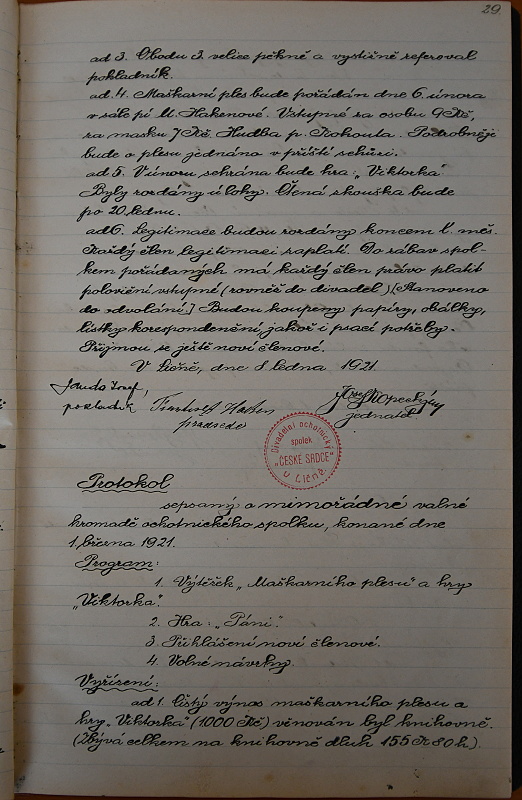 29.
ad 3. O bodu 3. velice pěkně a vystižně referoval
pokladník.
ad. 4. Maškarní ples bude pořádán dne 6. února
v sále pí M. Hakenové. Vstupné za osobu 9 Kč,
za masku 7 Kč. Hudba p. Kohouta. Podrobněji
bude o plesu jednáno v příští schůzi.
ad 5. V únoru sehrána bude hra: „Viktorka"
Byly rozdány úlohy. Čtená zkouška bude
po 20. lednu.
ad 6. Legitimace budou rozdány koncem t. měs.
Každý člen legitimaci zaplatí. Do zábav spol-
kem pořádaných má každý člen právo platit
poloviční vstupné (rovněž do divadel) [Stanoveno
do odvolání.] Budou koupeny papíry, obálky,
lístky korespondenční, jakož i psací potřeby.
Přijmou se ještě noví členové.
V Líčně, dne 8 ledna 1921.
Josef Kopecký
pokladník
předseda
jednatel
Divadelní ochotnický
spolek
„ČESKÉ SRDCE"
v Líčně
Protokol
sepsaný o mimořádné valné
hromadě ochotnického spolku, konané dne
1. března 1921.
Program:
1. Výtěžek „Maškarního plesu" a hry
„Viktorka".
2. Hra: „Páni."
3. Přihlášení noví členové.
4. Volné návrhy.
Vyřízení:
ad 1. Čistý výnos maškarního plesu a
hry „Viktorka" (1000 Kč) věnován byl knihovně.
(Zbývá celkem na knihovně dluh 155 K 80 h).